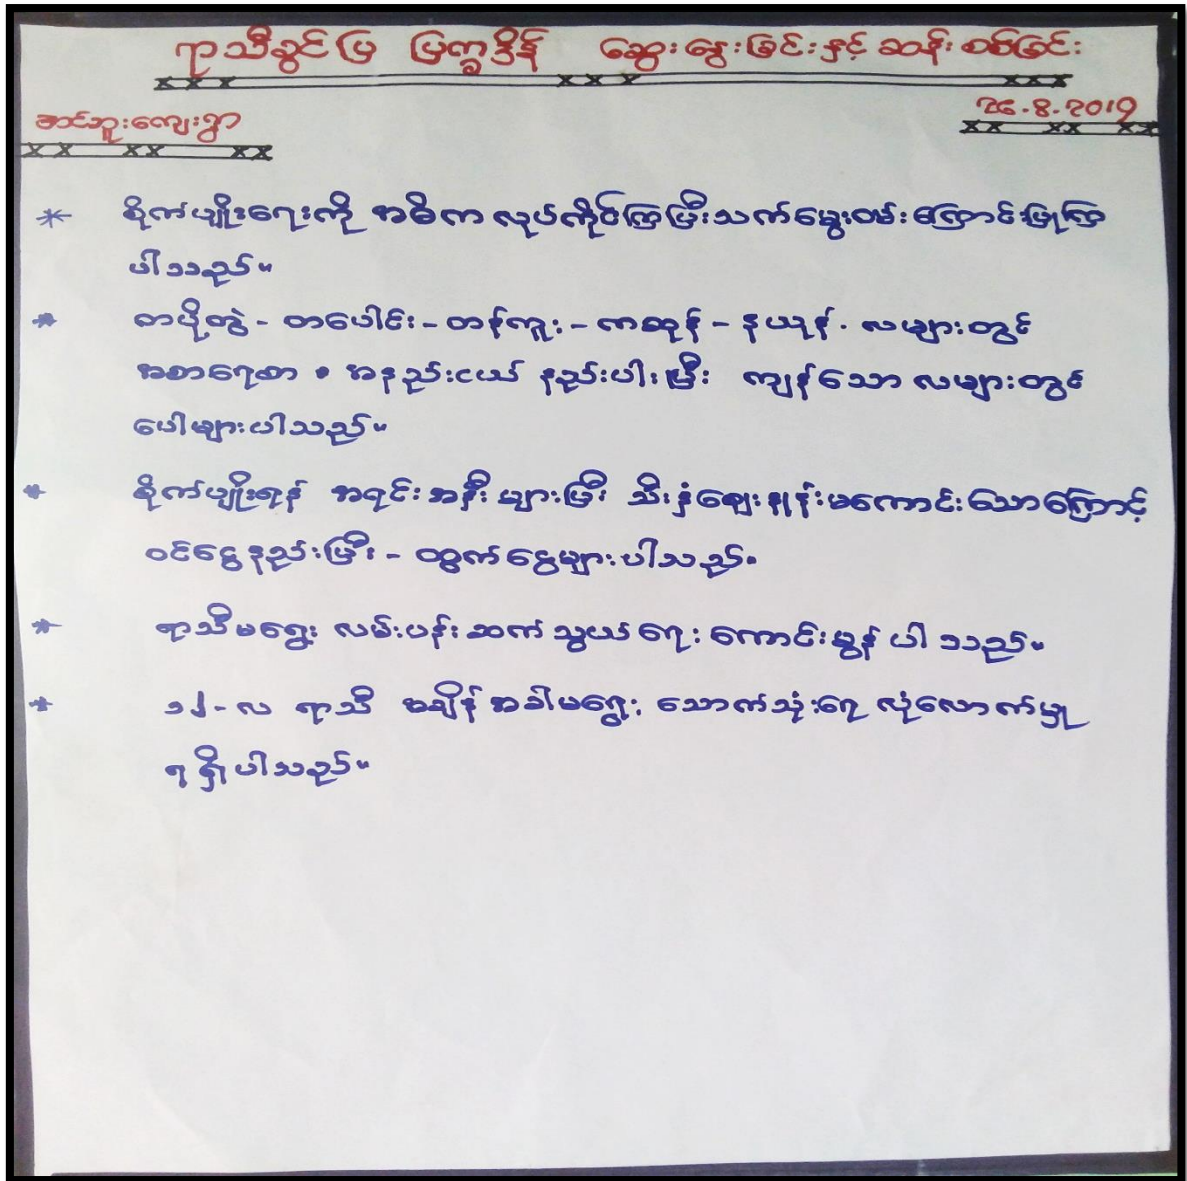 ရာသီခွင်ပြ ပြက္ခဒိန် ဆွေးနွေးခြင်းနှင့် ဆန်းစစ်ခြင်း
ဆင်ဘူးကျေးရွာ
26.8.2019
* စိုက်ပျိုးရေးကို အဓိက လုပ်ကိုင်ကြပြီးသက်မွေးဝမ်းကြောင်းပြုကြ
ပါသည်။
* တပို့တွဲ - တပေါင်း - တန်ကူး - ကဆုန် - နယုန် . လများတွင်
အစာရေစာ • အနည်းငယ် နည်းပါးပြီး ကျန်သော လများတွင်
ပေါများပါသည်။
* စိုက်ပျိုးရန် အရင်းအနှီး များပြီး သီးနှံဈေးနှုန်းမကောင်းသောကြောင့်
ဝင်ငွေနည်းပြီး - ထွက်ငွေများပါသည်။
* ရာသီမရွေး လမ်းပန်းဆက်သွယ်ရေး ကောင်းမွန်ပါသည်။
* ၁၂-လ ရာသီ အချိန်အခါမရွေး သောက်သုံးရေ လုံလောက်မှု
ရရှိပါသည်။